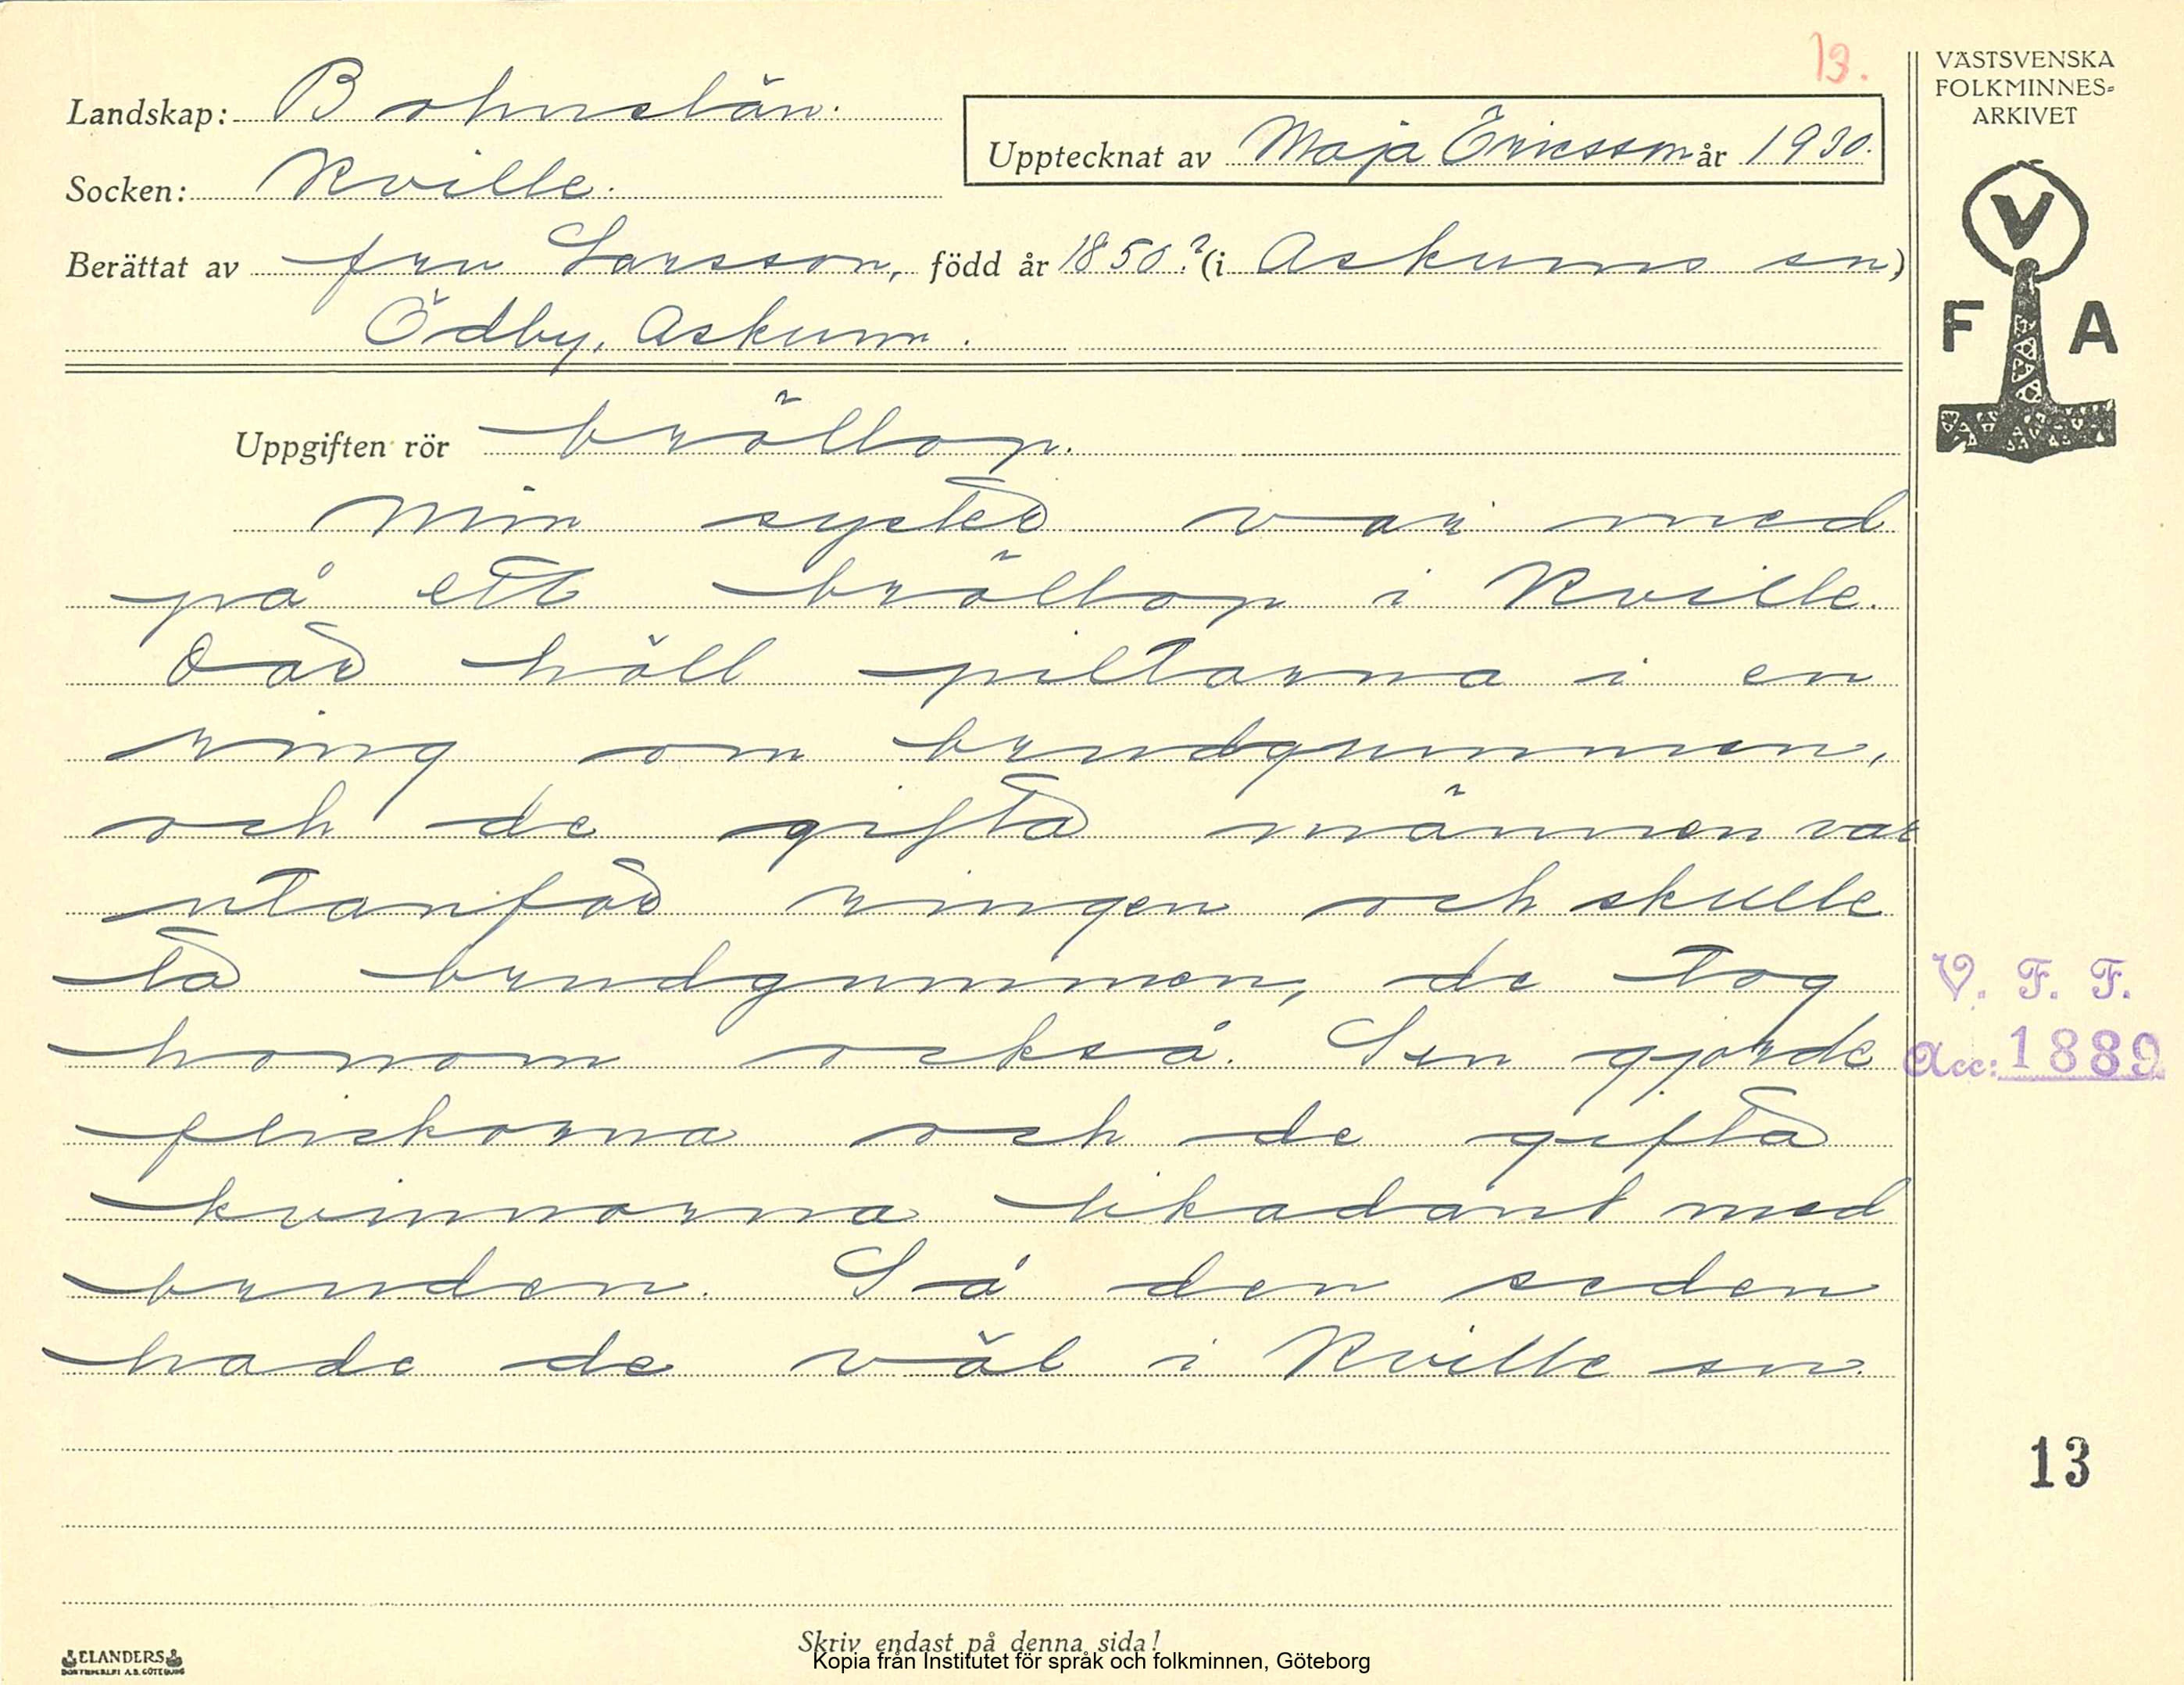 13.
VÄSTSVENSKA
FOLKMINNES-
ARKIVET
Landskap: Bohuslän.
Upptecknat av Maja Ericsson år 1930.
Socken: Kville.
Berättat av fru Larsson, född år 1850? (i Askums sn)
Ödby, Askum.
V
F A
Uppgiften rör bröllop.
Min syster var med
på ett bröllop i Kville.
Där höll piltarna i en
ring om brudgummen,
och de gifta männen var
utanför ringen och skulle
ta brudgummen, de tog
honom också. Sen gjorde
flickorna och de gifta
kvinnorna likadant med
bruden. Så den seden
hade de väl i Kville sn.
V. F. F.
Acc: 1889
13
Skriv endast på denna sida!
Kopia från Institutet för språk och folkminnen, Göteborg
ELANDERS
BOKTRYCKERI A.B. GÖTEBORG